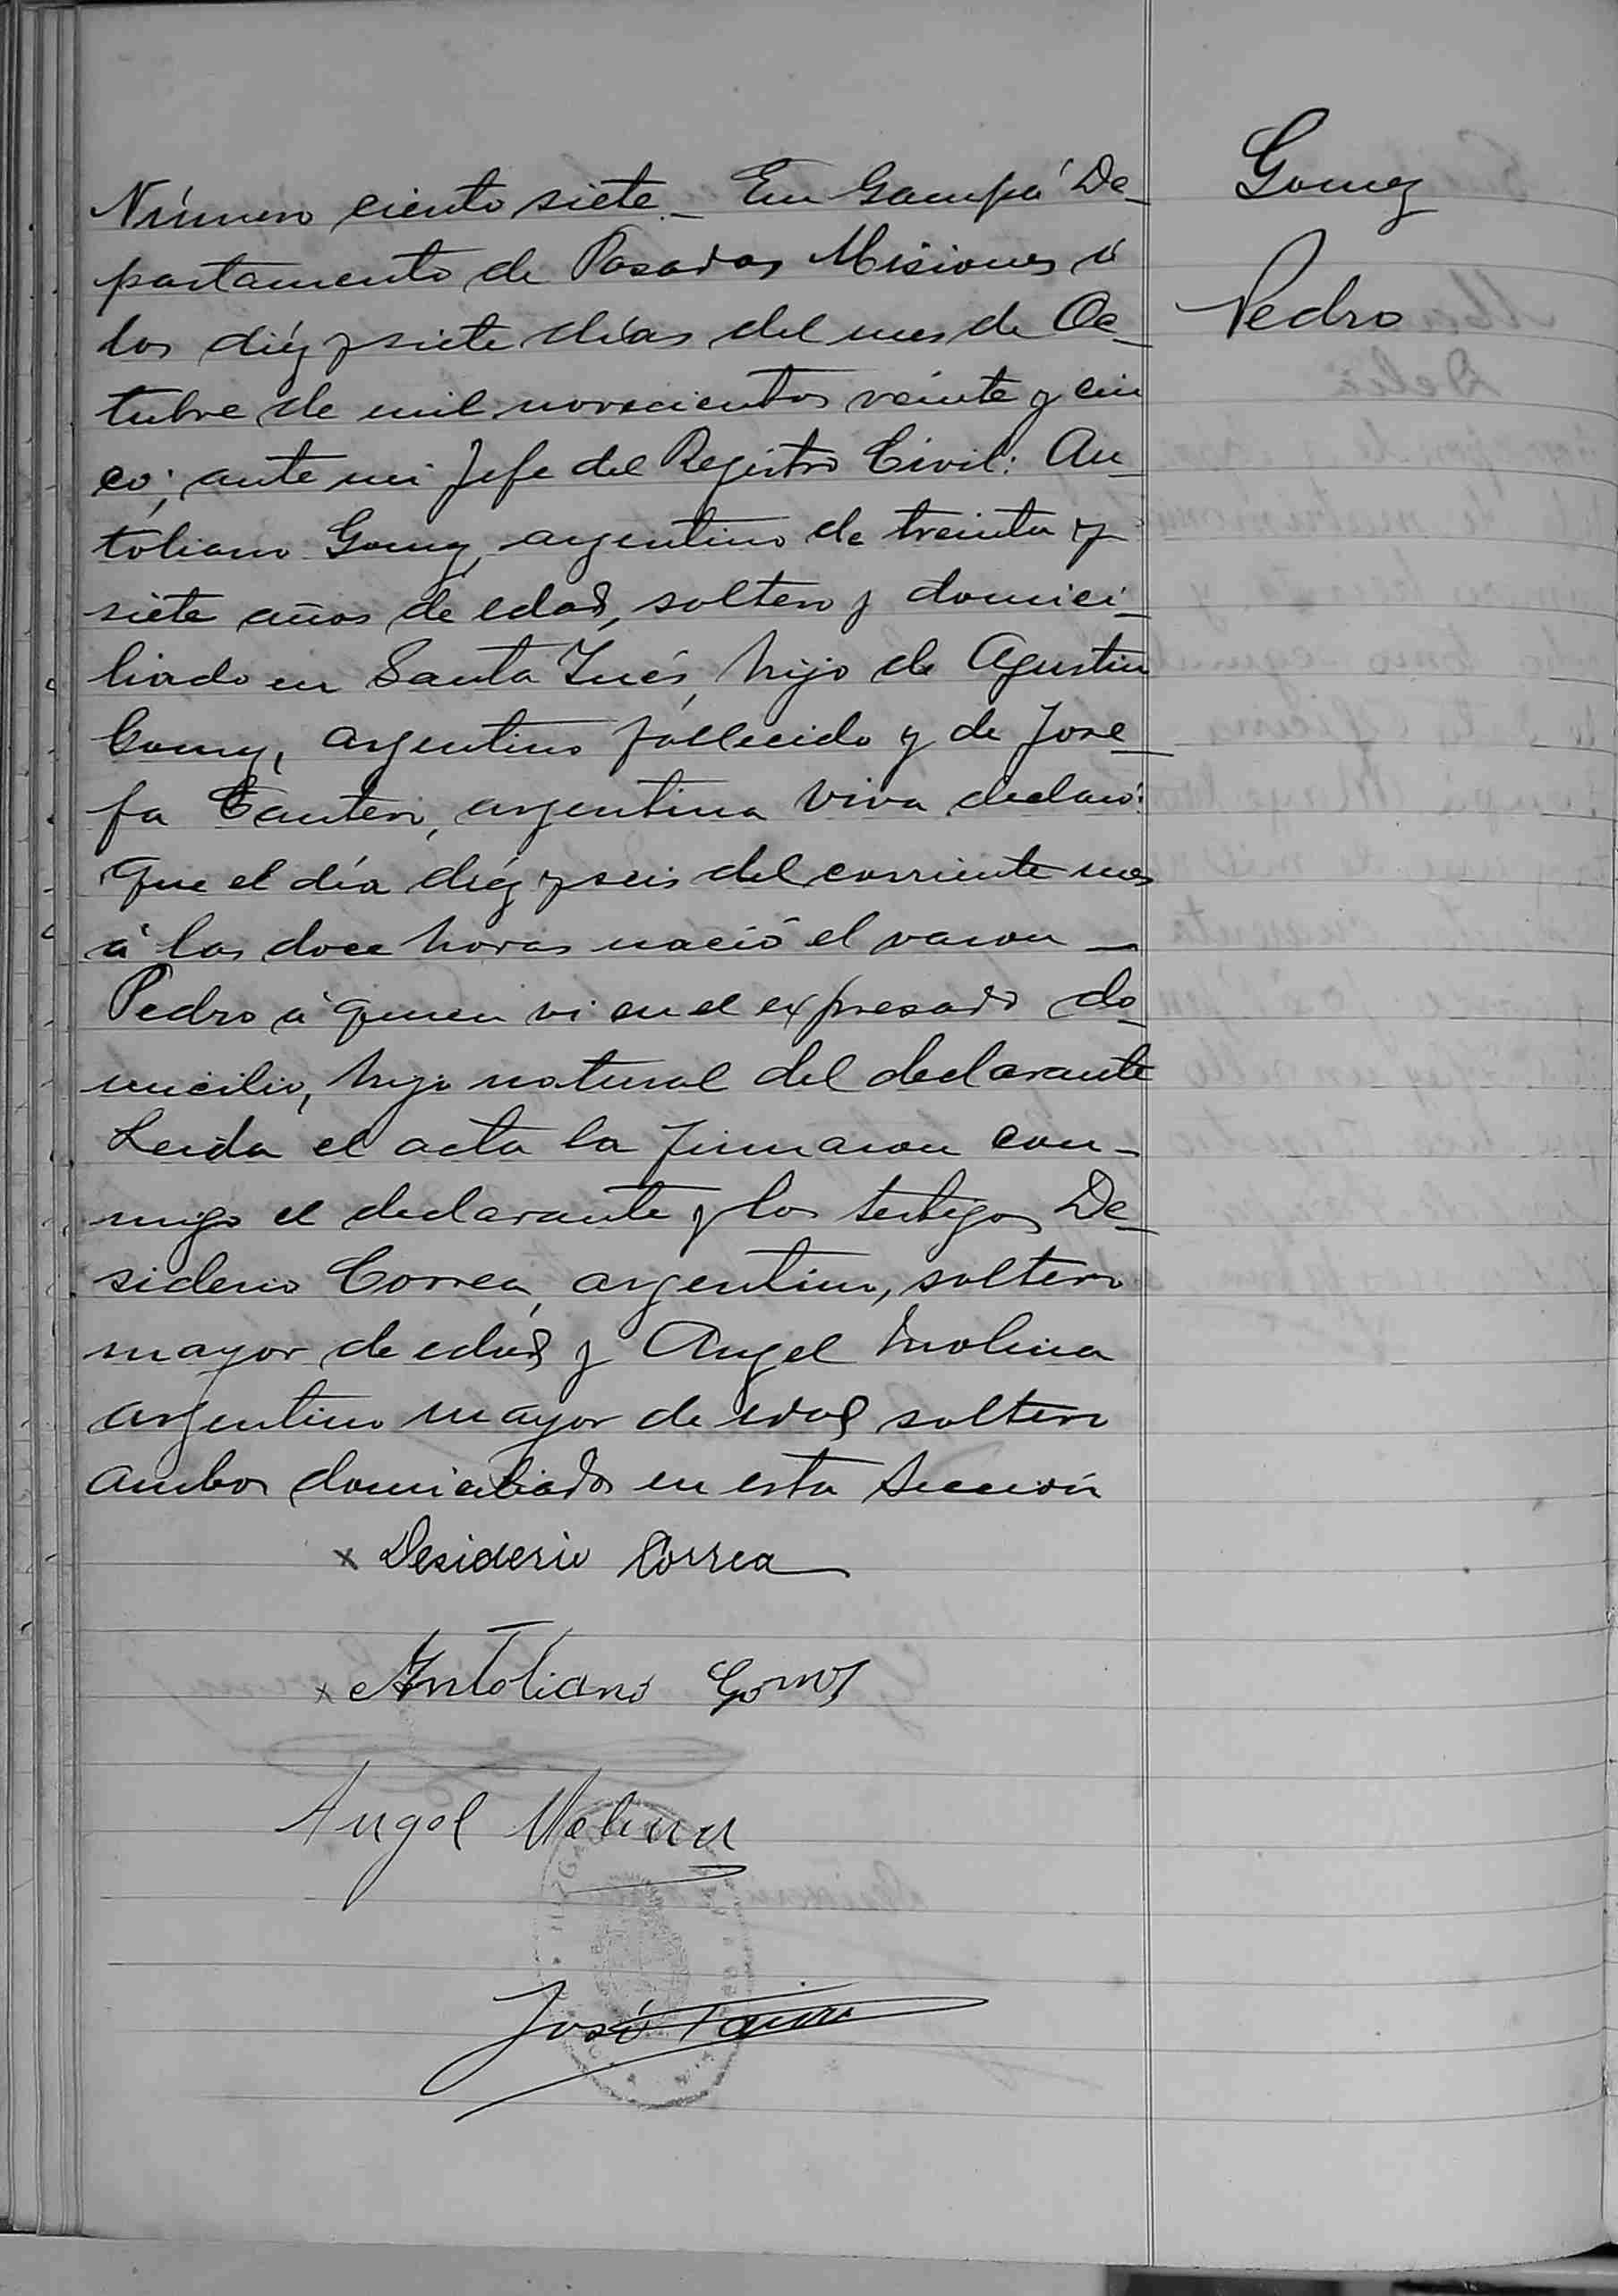 Gomez
Pedro
Número ciento siete._ En Garupá De_
partamento de Posadas Misiones á
los diéz y siete días del mes de Oc_
tubre de mil novecientos veinte y cin
co; ante mi Jefe del Registro Civil: An_
toliano Gomez, argentino de treinta y
siete años de edad, soltero y domici_
liado en Santa Inés, hijo de Agustin
Gomez, argentino fallecido y de Jose_
fa argentina viva declaró:
Que el día diéz y seis del corriente mes
á las doce horas nació el varon _
Pedro á quien vi en el expresado do_
micilio, hijo natural del declarante
Leida el acta la firmaron con_
migo el declarante y los testigos De_
siderio Correa, argentino, soltero
mayor de edad y Angel Molina
argentino mayor de edad soltero
ambos domiciliados en esta Sección
x Desiderio Correa
x Antoliano Gomez
Angel Molina
José